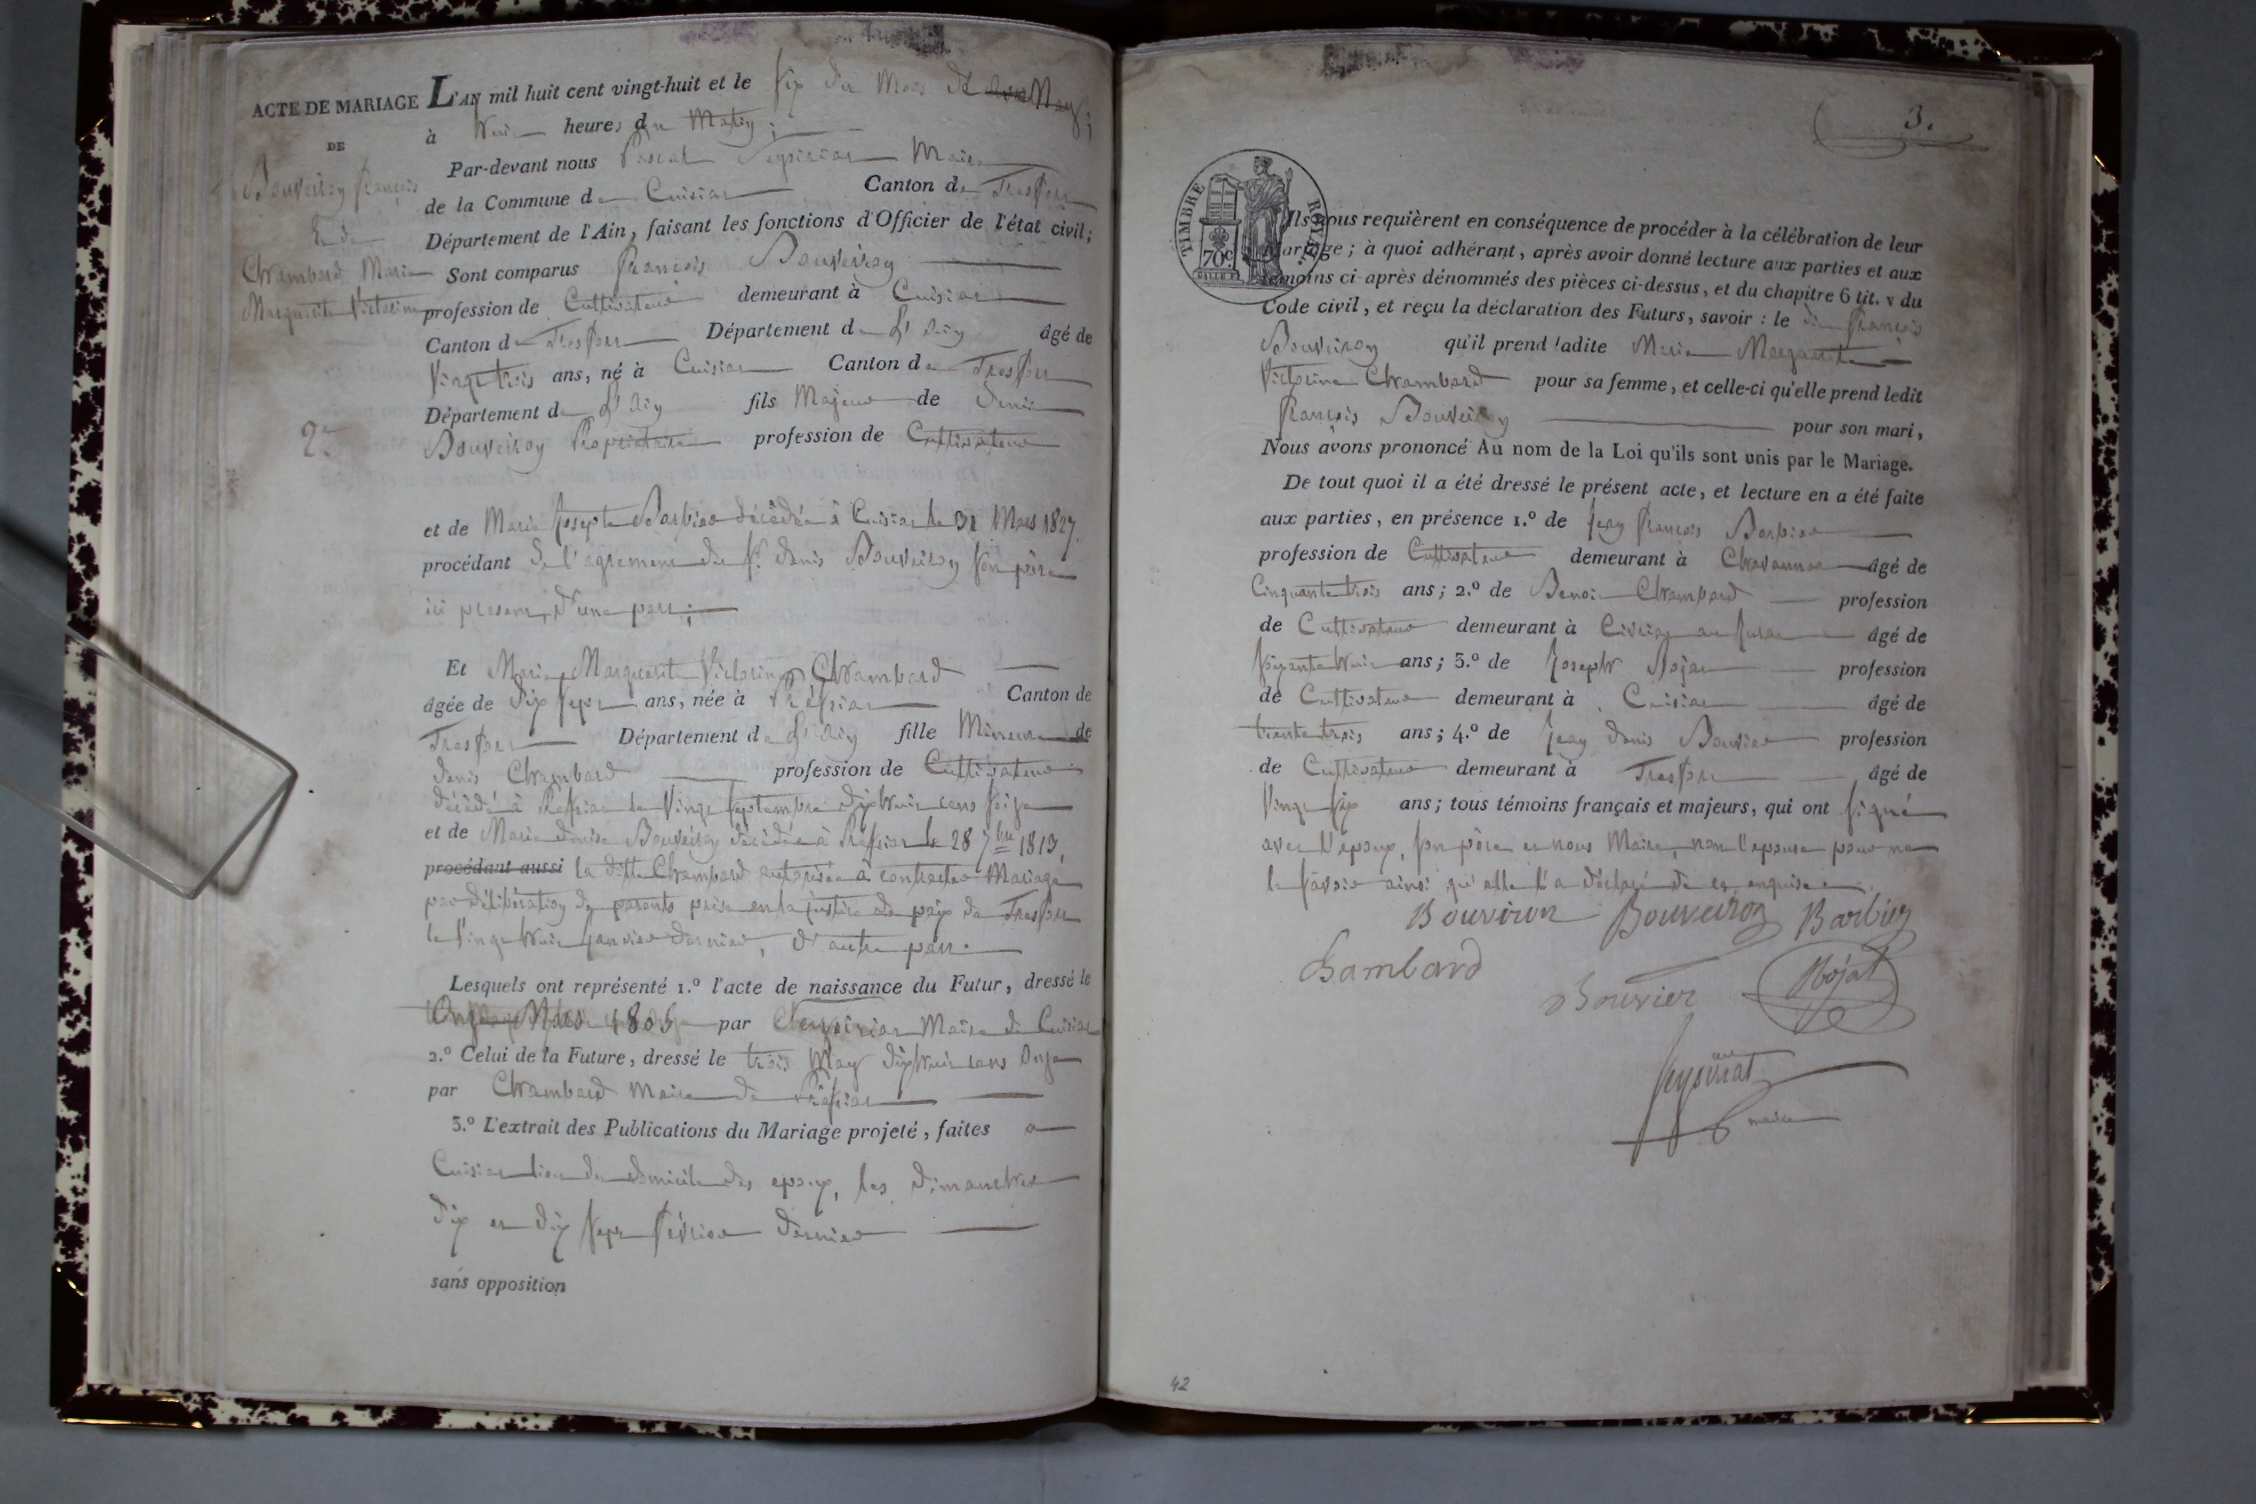 ACTE DE MARIAGE
DE
Bouveiron françois
Et de
Chambard Marie
Marguerite Victorine
2e
L'AN mil huit cent vingt-huit et le six du Mois de May;
à huit heures du Matin;
Par-devant nous Pascal Peysieriat Maire
de la Commune de Cuisiat Canton de Treffort
Département de l'Ain, faisant les fonctions d'Officier de l'état civil;
Sont comparus françois Bouveiron
profession de Cultivateur demeurant à Cuisiat
Canton de Treffort Département de l'Ain âgé de
Vingt trois ans, né à Cuisiat Canton de Treffort
Département de l'Ain fils Majeur de Denis
Bouveiron Propriétaire profession de Cultivateur
et de Marie Josepte Barbier décédée à Cuisiat le 31 Mars 1827.
procédant de l'agrement du Sr. denis Bouveiron son père
ici present, d'une part;
Et Marie Marguerite Victorine Chambard
âgée de dix sept ans, née à Préssiat Canton de
Treffort Département de l'Ain fille Mineure de
denis Chambard profession de Cultivateur
décédé à Pressiat le Vingt septembre dix huit cent seize
et de Marie denise Bouveiron décédée à Pressiat le 28 7bre 1813,
procédant aussi la ditte Chambard autorisée à contracter Mariage
par délibération de parents prise en la justice de paix de Treffort
le Vingt huit janvier dernier, d'autre part.
Lesquels ont représenté 1.º l'acte de naissance du Futur, dressé le
1805 par Peysieriat Maire de Cuisiat
2.º Celui de la Future, dressé le trois May dix huit cent onze
par Chambard Maire de Préssiat
3.º L'extrait des Publications du Mariage projeté, faites a
Cuisiat lieu du domicile des epoux, les dimanches
dix et dix sept février dernier
sans opposition
3.
TIMBRE ROYAL
70c
Ils nous requièrent en conséquence de procéder à la célébration de leur
mariage; à quoi adhérant, après avoir donné lecture aux parties et aux
témoins ci-après dénommés des pièces ci-dessus, et du chapitre 6 tit. v du
Code civil, et reçu la déclaration des Futurs, savoir : le dit françois
Bouveiron qu'il prend ladite Marie Marguerite
Victorine Chambard pour sa femme, et celle-ci qu'elle prend ledit
françois Bouveiron pour son mari,
Nous avons prononcé Au nom de la Loi qu'ils sont unis par le Mariage.
De tout quoi il a été dressé le présent acte, et lecture en a été faite
aux parties, en présence 1.º de Jean françois Barbier
profession de Cultivateur demeurant à Chavannes âgé de
Cinquante trois ans; 2.º de Benoit Chambard profession
de Cultivateur demeurant à âgé de
soixante huit ans; 3.º de Joseph Rojat profession
de Cultivateur demeurant à Cuisiat âgé de
trente trois ans; 4.º de Jean denis Bouvier profession
de Cultivateur demeurant à Treffort âgé de
Vingt six ans; tous témoins français et majeurs, qui ont signé
avec l'epoux, son père et nous Maire, non l'epouse pour ne
le savoir ainsi qu'elle l'a déclaré de ce enquise.
Bouviron Bouveiron Barbier
Chambard
Bouvier Rojat
Peysieriat
maire
42